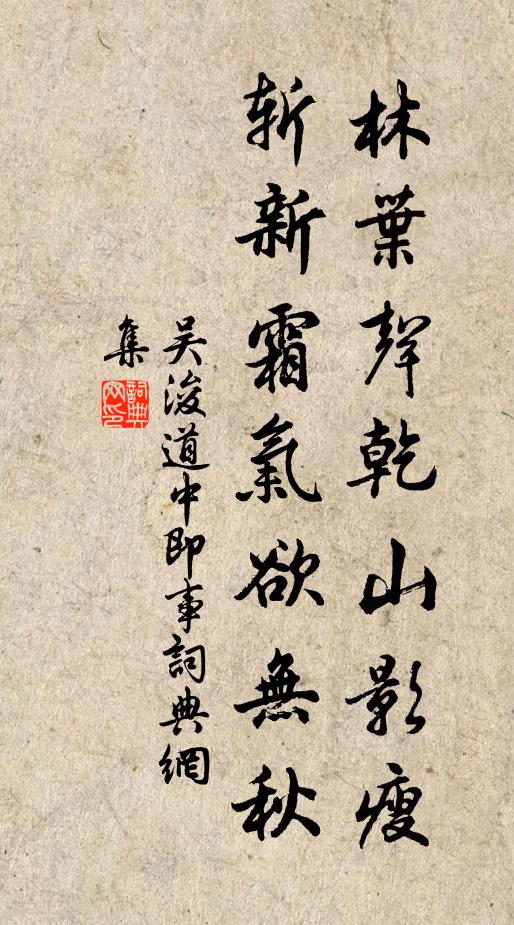 林葉聲乾山影瘦
斬新霜氣欲無秋
吴浚道中即事詞典網
集
詞典
网印